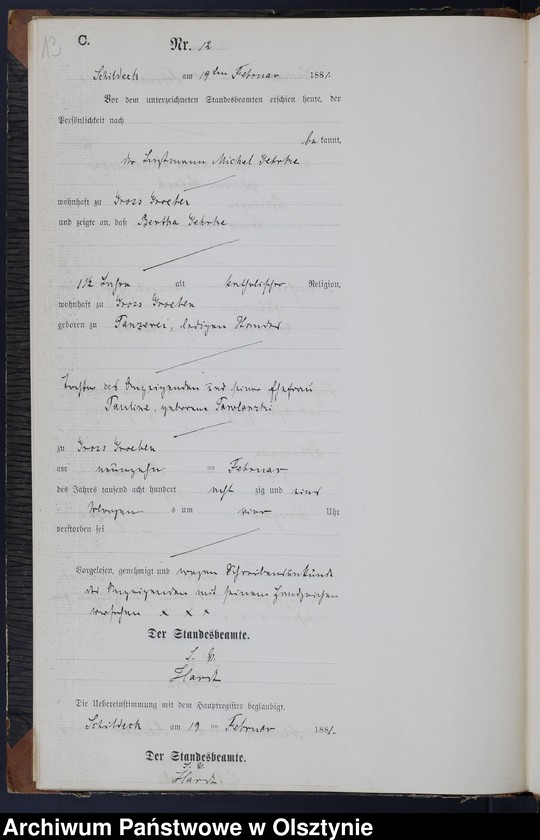 13
C.
Nr. 12
Schildeck am 19ten Februar 1881.
Vor dem unterzeichneten Standesbeamten erschien heute, der
Persönlichkeit nach
be kannt,
der Instmann Michel Gehrke
wohnhaft zu Gross Groeben
und zeigte an, daß Bertha Gehrke
1 1/2 Jahre alt katholischer Religion,
wohnhaft zu Gross Groeben
geboren zu ledigen Standes
Tochter des Anzeigenden und seiner Ehefrau
Pauline, geborene
zu Gross Groeben
am neunzehn ten Februar
des Jahres tausend acht hundert acht zig und eins
Morgens um vier Uhr
verstorben sei
Vorgelesen, genehmigt und wegen Schreibensunkunde
des Anzeigenden mit seinem Handzeichen
versehen x x x
Der Standesbeamte.
Hardt
Die Uebereinstimmung mit dem Hauptregister beglaubigt.
Schildeck am 19 ten Februar 1881.
Der Standesbeamte.
Hardt.
Archiwum Państwowe w Olsztynie